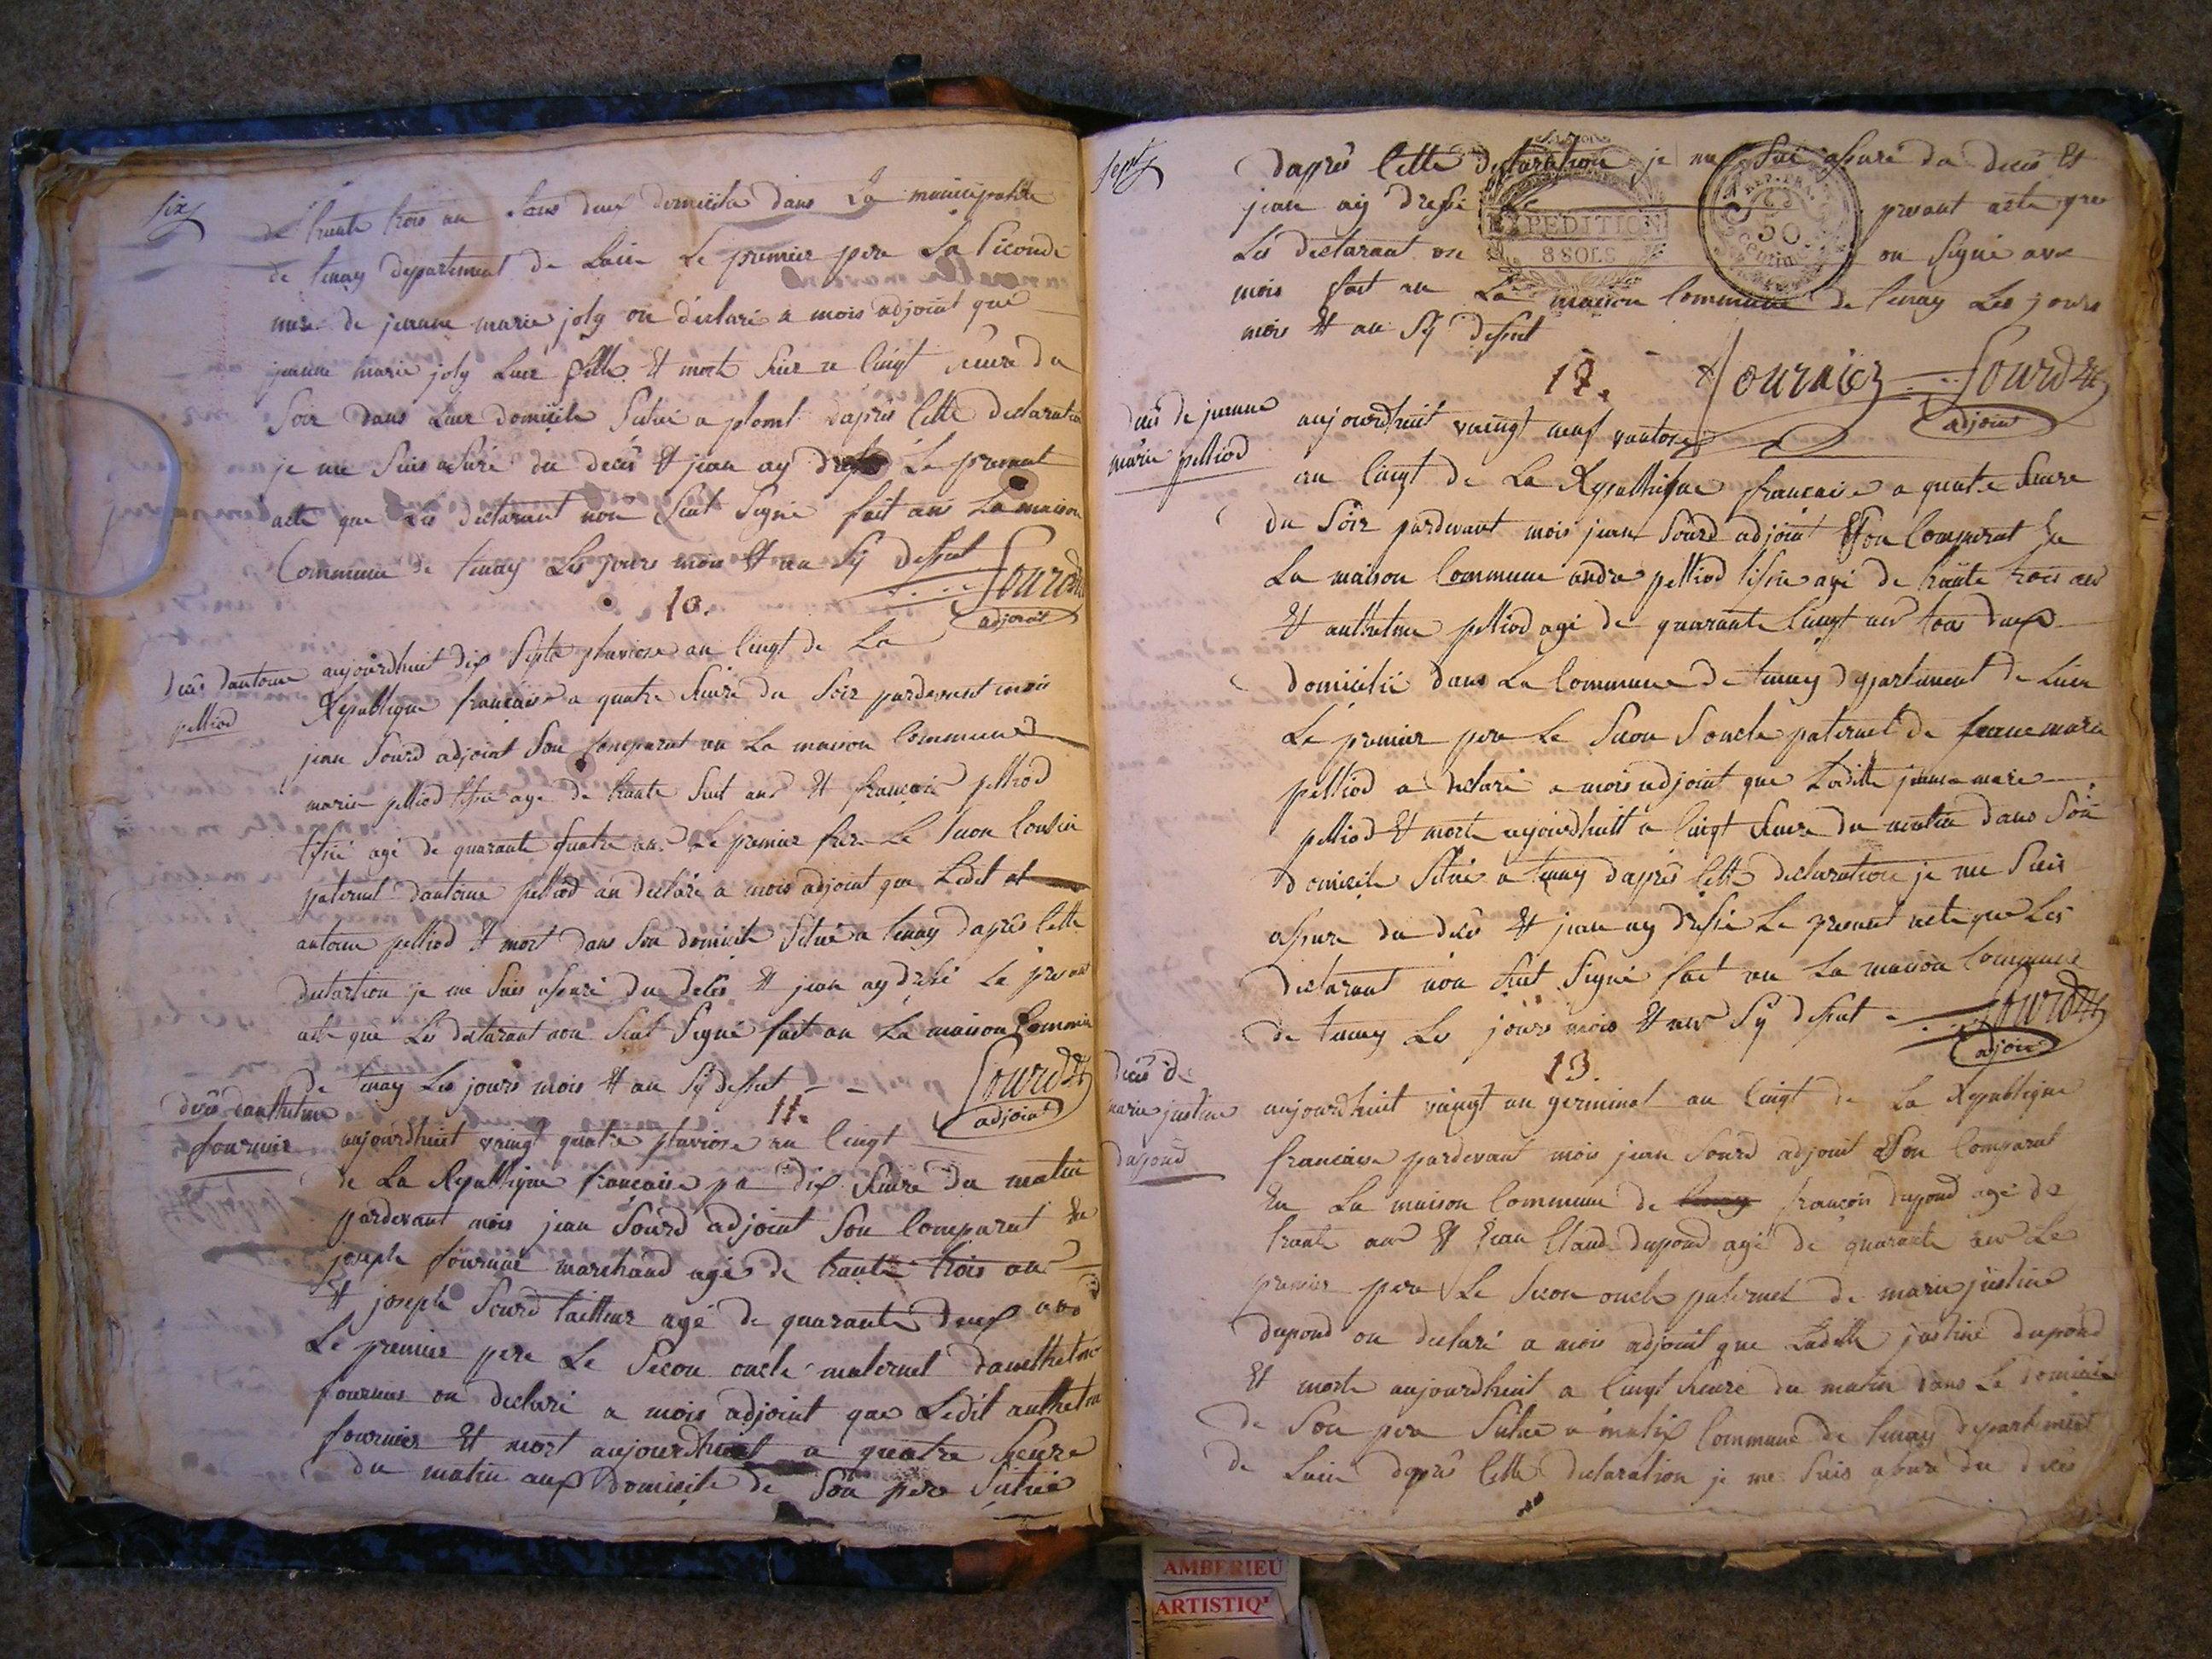 six
de trante trois an tous deux domicilie dans La municipalite
de tenay departement de Lain Le premier pere La Seconde
mere de jeanne marie joly on déclaré a mois adjoint que
jeanne marie joly Leur fille Et morte hier a cinqt heure du
Soir dans Leur domicile Situé a plomt dapres cette declaration
je me Suis asuré du décés Et jean ay dressé Le presant
acte que Les declarant non Seut Signé fait ans La maison
Commune de tenay Les jours mois Et an Sy dessut
Sourd
adjoint
10.
décés dantoine
pelliod
aujourdhuit dix Septe pluviose an cinqt de La
Republique francaise a quatre heure du Soir pardevant mois
jean Sourd adjoint Son comparut en La maison Commune
marin pelliod tisseur agé de trante huit ans Et francois pelliod
agé de quarante quatre ans Le premier frere Le Secon Cousin
paternel dantoine pelliod an declaré a mois adjoint que Ledit
antoine pelliod Et mort dans Son domicile Situé a tenay dapres cette
declartion je me Suis asuré du décés Et jean ay dressé Le presant
acte que Les declarant non Seut Signé fait an La maison Commune
de tenay Les jours mois Et an Sy dessut
Sourd
adjoint
11.
décés danthelme
fournier
aujourdhuit vaingt quatre pluviose an cinqt
de La Republique francaise a dix heure du matin
pardevant mois jean Sourd adjoint Son Comparut
joseph fournier marchand agé de trante trois an
Et joseph Sourd tailleur agé de quarante deux ans
Le premier pere Le Secon oncle maternel danthelme
fournier on declaré a mois adjoint que Ledit anthelme
fournier Et mort aujourdhuit a quatre heure
du matin aux domicile de Son pere Situé
sept
dapres Cette declaration je me Sui asuré du decés Et
jean ay dressé Le presant acte que
Les declarant on Signé avec
mois fait en La maison Commune de tenay Les jours
mois Et an Sy dessut
EXPEDITION
8 SOLS
REP. FRA.
50
centimes
Fournier
Sourd
adjoint
12.
décés de jeanne
marie pelliod
aujourdhuit vaingt neuf vantose
an Cinqt de La Republique francaise a quatre heure
du Soir pardevant mois jean Sourd adjoint Son Comparut En
La maison Commune andre pelliod agé de trante trois ans
Et anthelme pelliod agé de quarante Cinqt ans tous deux
domicilié dans La Commune de tenay departement de Lain
Le premier pere Le Secon Loncle paternel de jeanne marie
pelliod a declaré a mois adjoint que Laditte jeanne marie
pelliod Et morte aujourdhuit a Cinqt heure du matin dans Son
domicile Situé a tenay dapres Cette declaration je me Suis
assure du décés Et jean ay dressé Le presant acte que Les
declarant non Seut Signé fait en La maison Commune
de tenay Les jours mois Et an Sy dessut
Sourd
adjoint
13.
décés de
marie justine
dupond
aujourdhuit vaingt un germinal an Cinqt de La Republique
francaise pardevant mois jean Sourd adjoint Son Comparut
En La maison Commune de tenay francois dupond agé de
trante ans Et jean Claude dupond agé de quarante ans Le
premier pere Le Secon oncle paternel de marie justine
dupond on declaré a mois adjoint que Laditte justine dupond
Et morte aujourdhuit a Cinqt heure du matin dans Le domicile
de Son pere Situé a Commune de tenay departement
de Lain dapres Cette declaration je me Suis asuré du décés
AMBERIEU
ARTISTIQ'